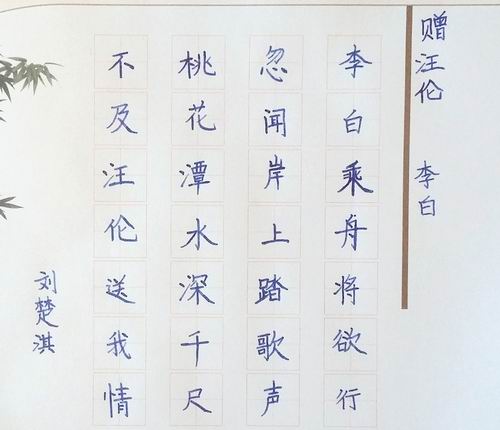 赠汪伦
李白
李白乘舟将欲行
忽闻岸上踏歌声
桃花潭水深千尺
不及汪伦送我情
刘楚淇